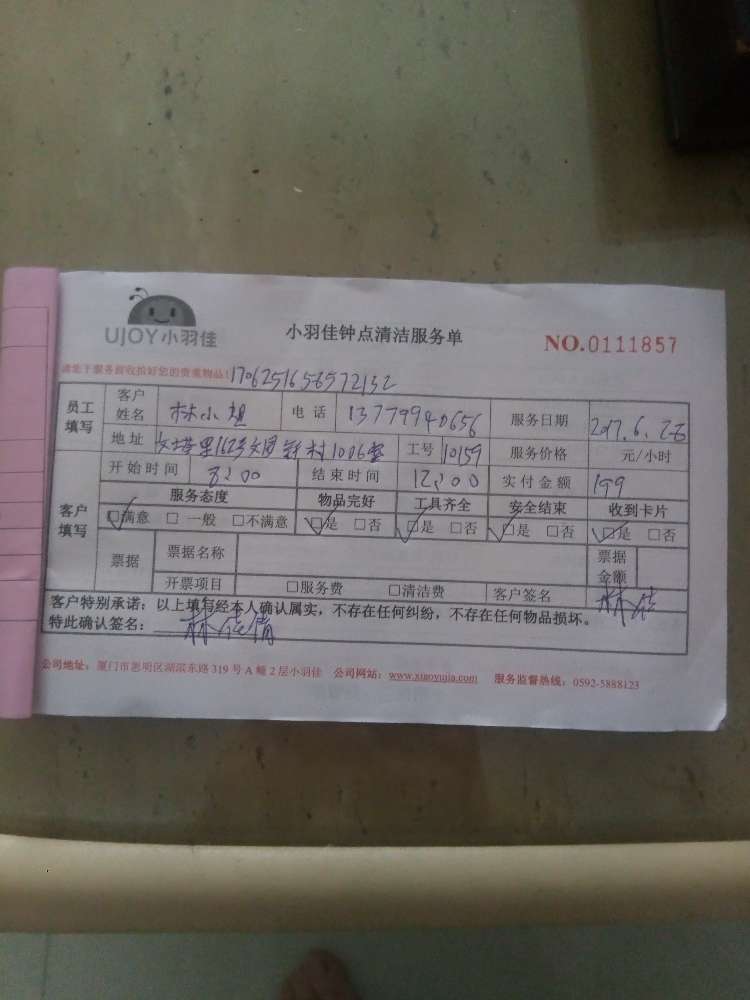 UJOY小羽佳
小羽佳钟点清洁服务单
NO.0111857
请您于服务前收拾好您的贵重物品!
员工填写 客户姓名 林小姐 电话 13779940656 服务日期 2017.6.26
地址 1006室 工号 10159 服务价格 元/小时
开始时间 8:00 结束时间 12:00 实付金额 199
客户填写 服务态度 物品完好 工具齐全 安全结束 收到卡片
□满意 □一般 □不满意 □是 □否 □是 □否 □是 □否 □是 □否
票据 票据名称 票据金额
开票项目 □服务费 □清洁费 客户签名 林
客户特别承诺:以上填写经本人确认属实,不存在任何纠纷,不存在任何物品损坏。
特此确认签名: 林
公司地址:厦门市思明区湖滨东路319号A幢2层小羽佳 公司网站:www.xiaoyujia.com 服务监督热线:0592-5888123